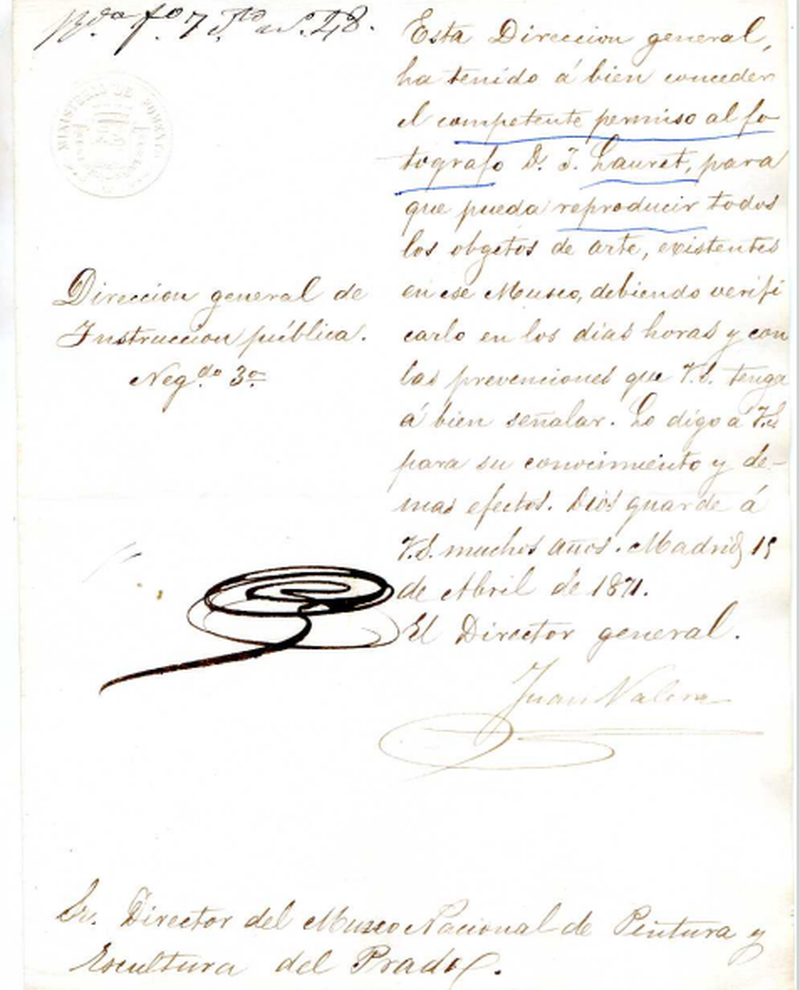 fo 7 nº 48.
MINISTERIO DE FOMENTO
Direccion general de
Instruccion pública.
Neg.do 3o
Esta Direccion general,
ha tenido á bien conceder
el competente permiso al fo-
tografo D. J. Lauret, para
que pueda reproducir todos
los obgetos de arte, existentes
en ese Museo, debiendo verifi
carlo en los dias horas y con
las prevenciones que V.S. tenga
á bien señalar. Lo digo á V.S.
para su conocimiento y de-
mas efectos. Dios guarde á
V.S. muchos años. Madrid 15
de Abril de 1871.
El Director general.
Juan Valera
Sr. Director del Museo Nacional de Pintura y
Escultura del Prado.